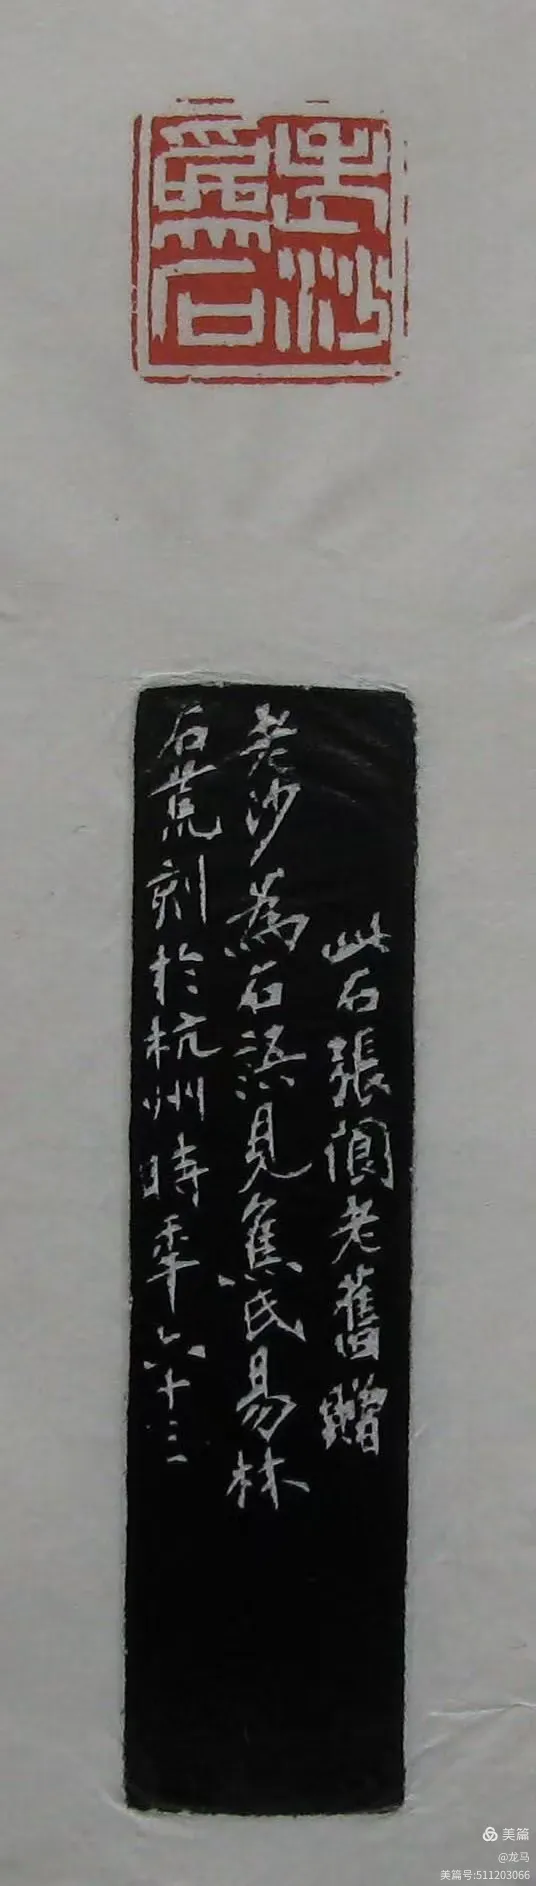 老沙
為石
此石張閬老舊贈
老沙為石語見焦氏易林
石荒刻於杭州時年六十三
美篇
@龙马
美篇号:511203066